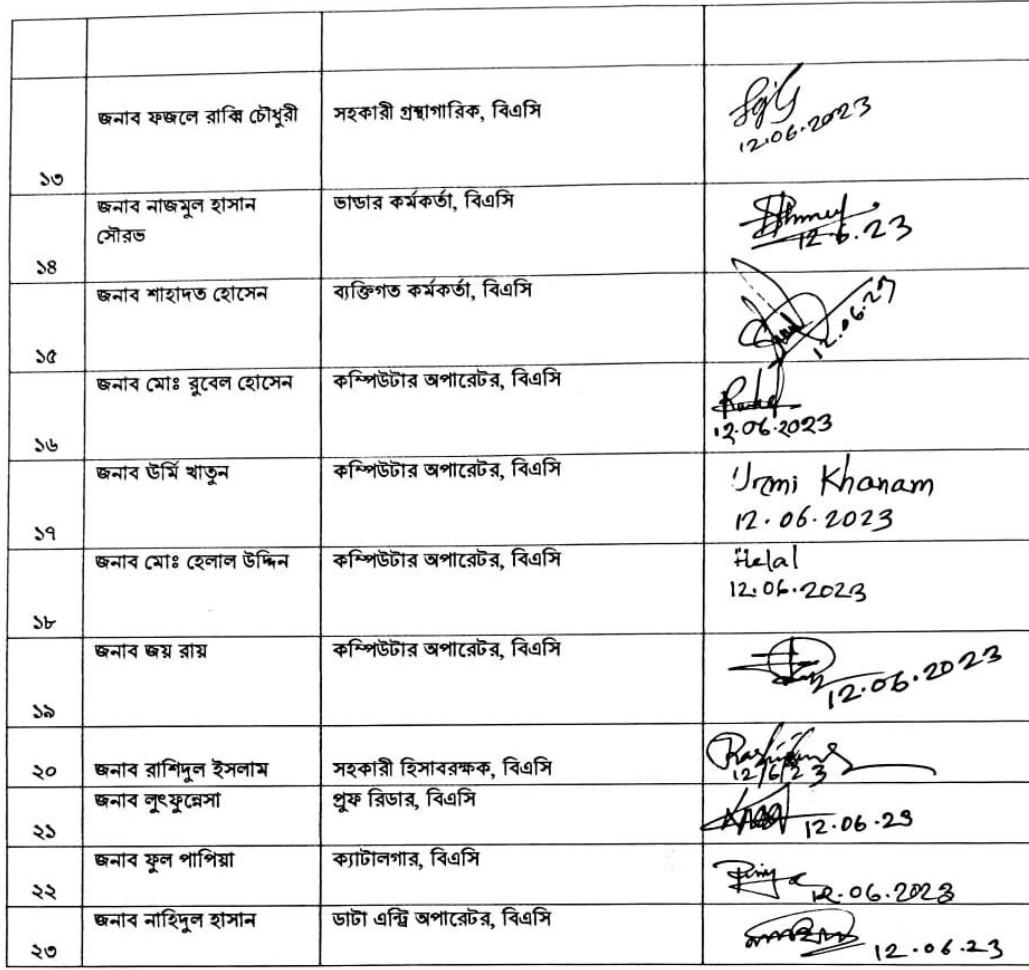 জনাব ফজলে রাব্বি চৌধুরী সহকারী গ্রন্থাগারিক, বিএসি
12.06.2023
১৩
জনাব নাজমুল হাসান ভান্ডার কর্মকর্তা, বিএসি
সৌরভ
12.6.23
১৪
জনাব শাহাদত হোসেন ব্যক্তিগত কর্মকর্তা, বিএসি
১৫
জনাব মোঃ রুবেল হোসেন কম্পিউটার অপারেটর, বিএসি
12.06.2023
১৬
জনাব উর্মি খাতুন কম্পিউটার অপারেটর, বিএসি Urmi Khanam
12.06.2023
১৭
জনাব মোঃ হেলাল উদ্দিন কম্পিউটার অপারেটর, বিএসি Helal
12.06.2023
১৮
জনাব জয় রায় কম্পিউটার অপারেটর, বিএসি
12.06.2023
১৯
২০ জনাব রাশিদুল ইসলাম সহকারী হিসাবরক্ষক, বিএসি 12/6/23
জনাব লুৎফুন্নেসা প্রুফ রিডার, বিএসি
২১ 12.06.23
জনাব ফুল পাপিয়া ক্যাটালগার, বিএসি
২২ 12.06.2023
জনাব নাহিদুল হাসান ডাটা এন্ট্রি অপারেটর, বিএসি
২৩ 12.06.23